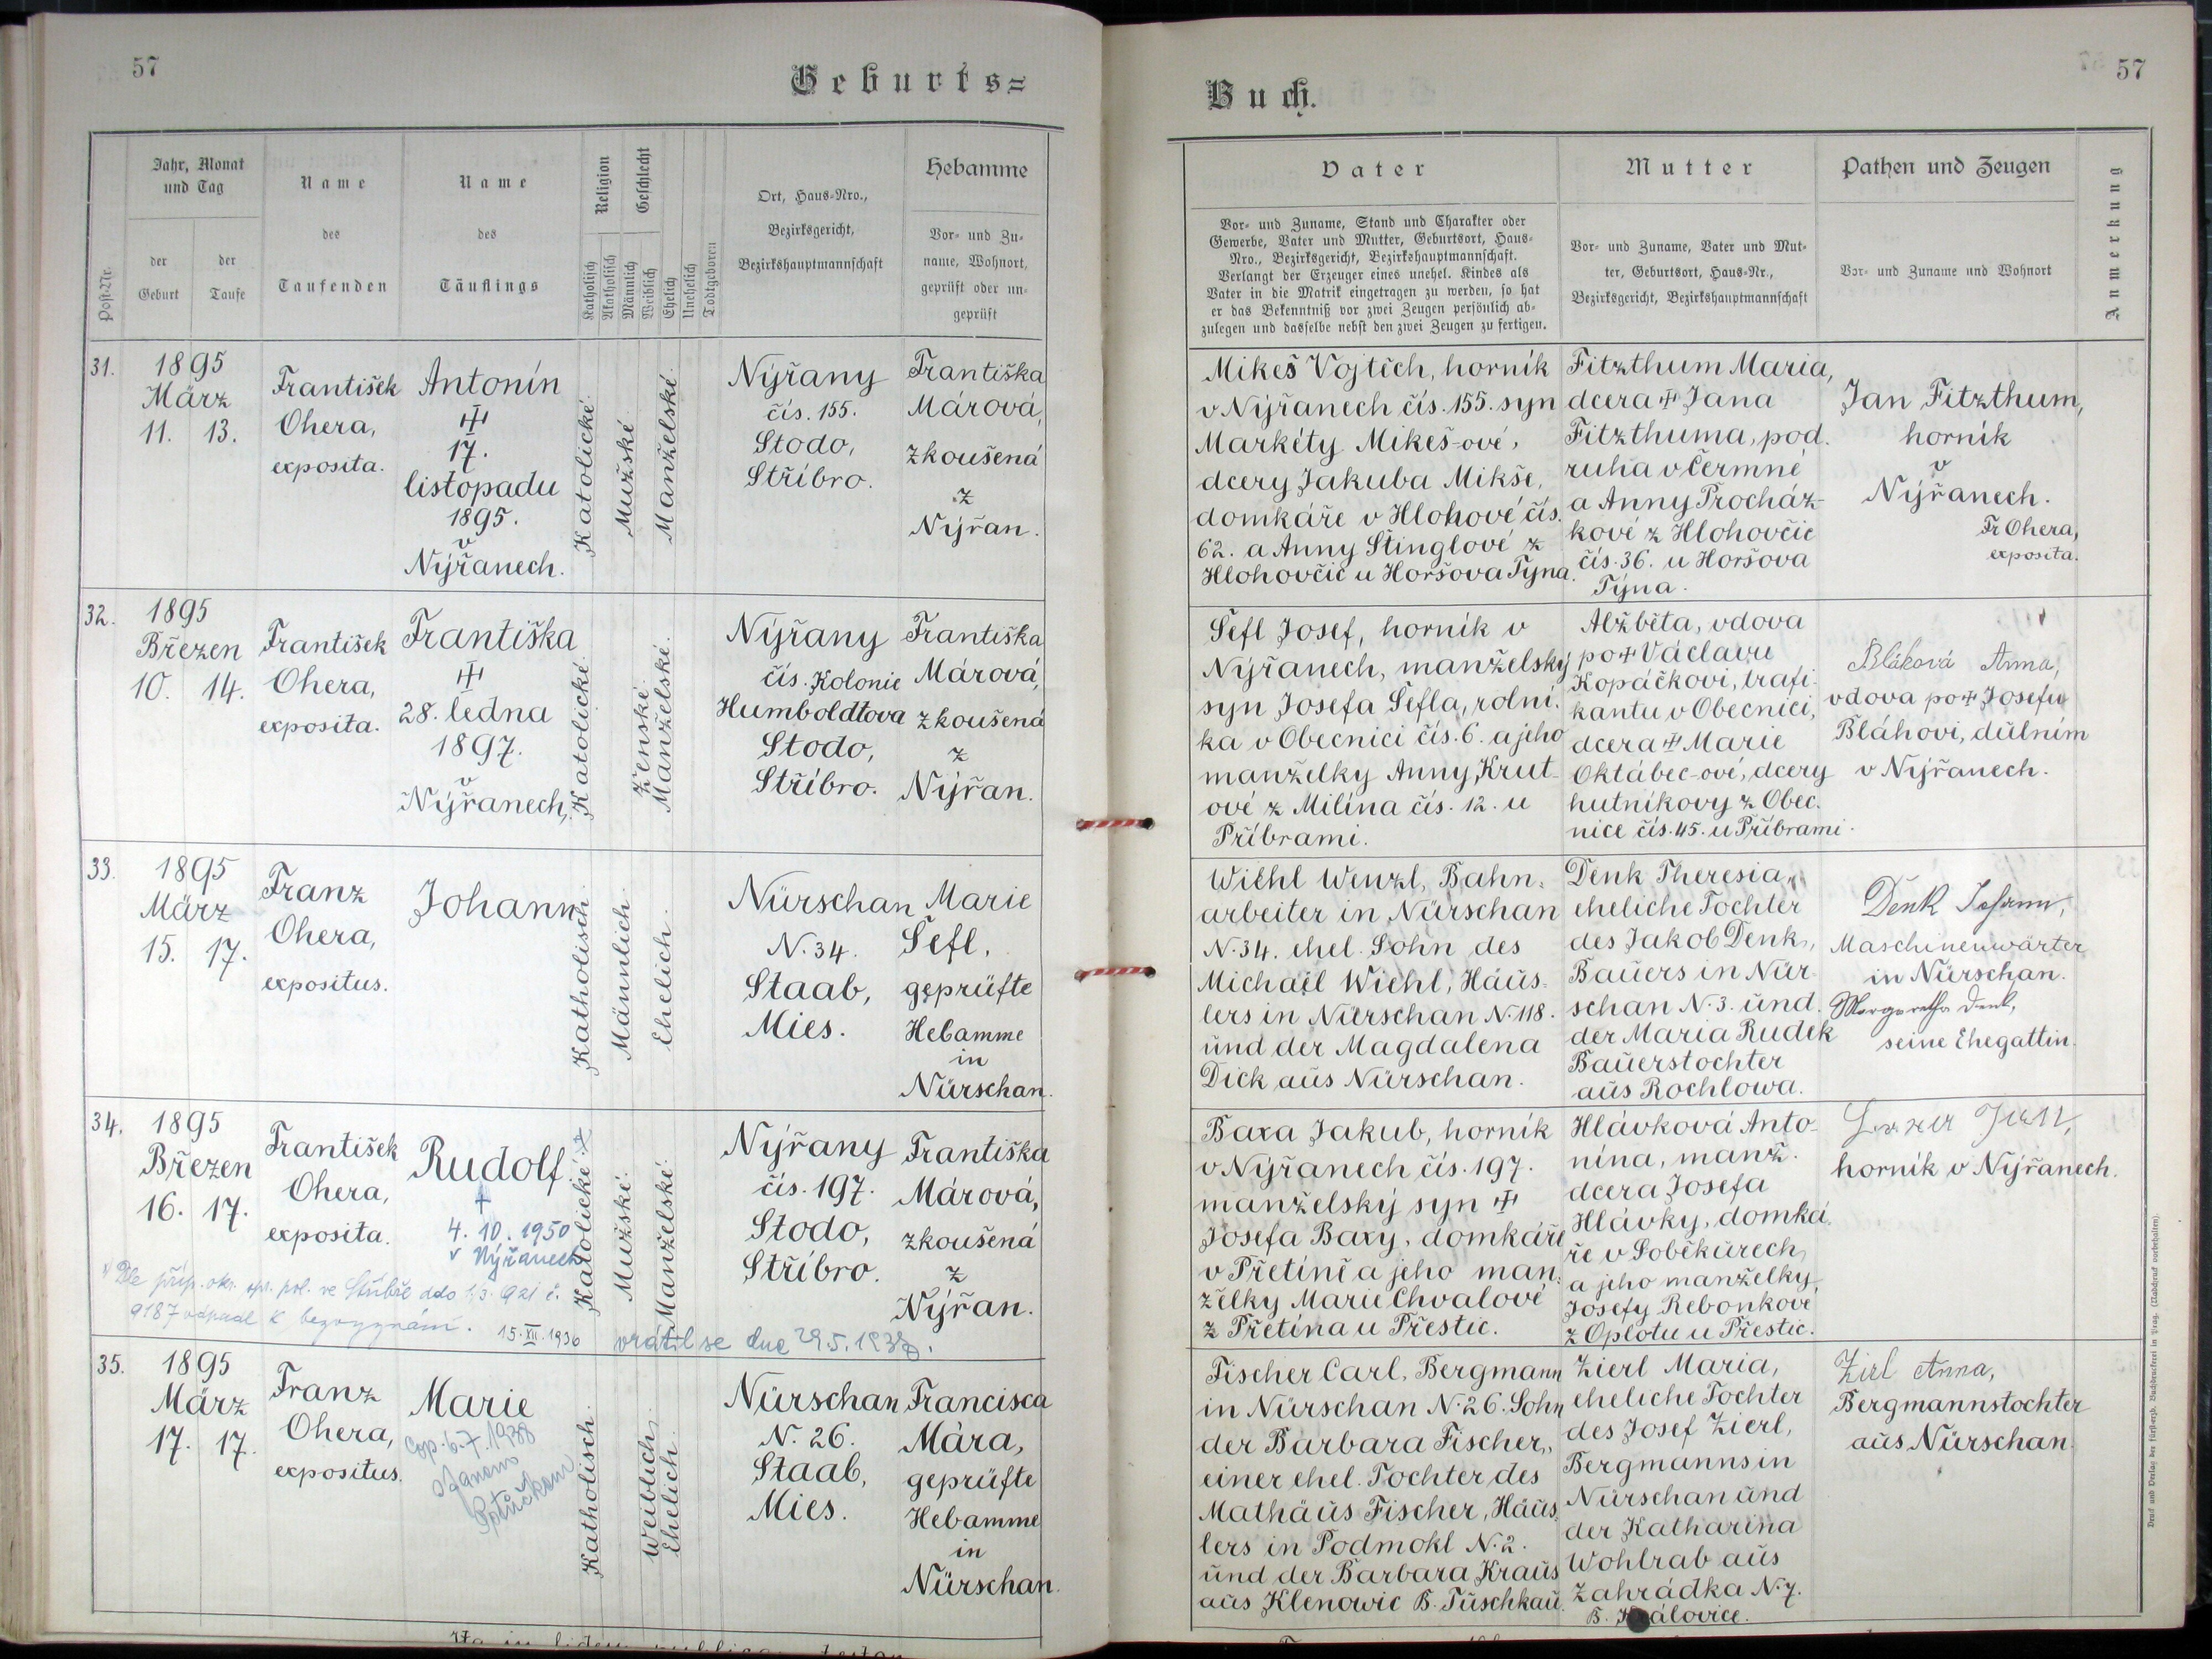 57
Geburts=
Jahr, Monat
und Tag
der
Geburt
der
Taufe
Post-Nr.
Name
des
Taufenden
Name
des
Täuflings
Religion
Katholisch
Akatholisch
Geschlecht
Männlich
Weiblich
Ehelich
Unehelich
Todtgeboren
Ort, Haus-Nro.,
Bezirksgericht,
Bezirkshauptmannschaft
Hebamme
Vor- und Zu-
name, Wohnort,
geprüft oder un-
geprüft
31.
1895
März
11. 13.
František
Ohera,
exposita.
Antonín
17.
listopadu
1895.
v
Nýřanech.
Katolické.
Mužské.
Manželské.
Nýřany
čís. 155.
Stodo,
Stříbro.
Františka
Márová,
zkoušená
z
Nýřan.
32.
1895
Březen
10. 14.
František
Ohera,
exposita.
Františka
28. ledna
1897.
v
Nýřanech,
Katolické.
Ženské.
Manželské.
Nýřany
čís. Kolonie
Humboldtova
Stodo,
Stříbro.
Františka
Márová,
zkoušená
z
Nýřan.
33.
1895
März
15. 17.
Franz
Ohera,
expositus.
Johann
Katholisch.
Männlich.
Ehelich.
Nürschan
N. 34.
Staab,
Mies.
Marie
Šefl,
geprüfte
Hebamme
in
Nürschan.
34.
1895
Březen
16. 17.
František
Ohera,
exposita.
Rudolf
+
4. 10. 1950
v Nýřanech
Katolické.
Mužské.
Manželské.
Nýřany
čís. 197.
Stodo,
Stříbro.
Františka
Márová,
zkoušená
z
Nýřan.
Dle příp. okr. spr. pol. ve Stříbře ddo 1.3. 921 č.
9187 odpadl k bezvyznání. 15. XII. 1936
vrátil se dne 29.5.1938.
35.
1895
März
17. 17.
Franz
Ohera,
expositus.
Marie
Cop. 6.7.1938
Katholisch.
Weiblich.
Ehelich.
Nürschan
N. 26.
Staab,
Mies.
Francisca
Mára,
geprüfte
Hebamme
in
Nürschan.
57
Buch.
Vater
Vor- und Zuname, Stand und Charakter oder
Gewerbe, Vater und Mutter, Geburtsort, Haus-
Nro., Bezirksgericht, Bezirkshauptmannschaft.
Verlangt der Erzeuger eines unehel. Kindes als
Vater in die Matrik eingetragen zu werden, so hat
er das Bekenntniß vor zwei Zeugen persönlich ab-
zulegen und dasselbe nebst den zwei Zeugen zu fertigen.
Mutter
Vor- und Zuname, Vater und Mut-
ter, Geburtsort, Haus-Nr.,
Bezirksgericht, Bezirkshauptmannschaft
Pathen und Zeugen
Vor- und Zuname und Wohnort
Anmerkung
Mikeš Vojtěch, horník
v Nýřanech čís. 155. syn
Markéty Mikeš-ové,
dcery Jakuba Mikše,
domkáře v Hlohové čís.
62. a Anny Štinglové z
Hlohovčic u Horšova Týna.
Fitzthum Maria,
dcera Jana
Fitzthuma, pod.
ruha v Čermné
a Anny Procház-
kové z Hlohovčic
čís. 36. u Horšova
Týna.
Jan Fitzthum,
horník
v
Nýřanech.
Fr Ohera,
exposita.
Šefl Josef, horník v
Nýřanech, manželský
syn Josefa Šefla, rolní.
ka v Obecnici čís. 6. a jeho
manželky Anny Krut-
ové z Milína čís. 12. u
Příbrami.
Alžběta, vdova
po + Václavu
Kopáčkovi, trafi.
kantu v Obecnici,
dcera Marie
Oktábec-ové, dcery
hutníkovy z Obec.
nice čís. 45. u Příbrami.
Bláhová Anna,
vdova po + Josefu
Bláhovi, důlním
v Nýřanech.
Wiehl Wenzl, Bahn.
arbeiter in Nürschan
N. 34. ehel. Sohn des
Michael Wiehl, Häus-
lers in Nürschan N. 118.
und der Magdalena
Dick aus Nürschan.
Denk Theresia,
eheliche Tochter
des Jakob Denk,
Bauers in Nür.
schan N. 3. und
der Maria Rudek
Bauerstochter
aus Rochlowa.
Denk Johann,
Maschinenwärter
in Nürschan.
Margaretha Denk,
seine Ehegattin.
Baxa Jakub, horník
v Nýřanech čís. 197.
manželský syn
Josefa Baxy, domkáře
v Přetíně a jeho man.
želky Marie Chvalové
z Přetína u Přestic.
Hlávková Anto-
nína, manž.
dcera Josefa
Hlávky, domká.
ře v Soběkúrech
a jeho manželky
Josefy Rebonkové
z Oplotu u Přestic.
horník v Nýřanech.
Fischer Carl, Bergmann
in Nürschan N. 26. Sohn
der Barbara Fischer,
einer ehel. Tochter des
Mathäus Fischer, Häus.
lers in Podmokl N. 2.
und der Barbara Kraus
aus Klenowic B. Tuschkau.
Zierl Maria,
eheliche Tochter
des Josef Zierl,
Bergmanns in
Nürschan und
der Katharina
Wohlrab aus
Zahrádka N. 7.
B. Králowice.
Zirl Anna,
Bergmannstochter
aus Nürschan.
Druck und Verlag der fürsterzb. Buchdruckerei in Prag. (Nachdruck vorbehalten).